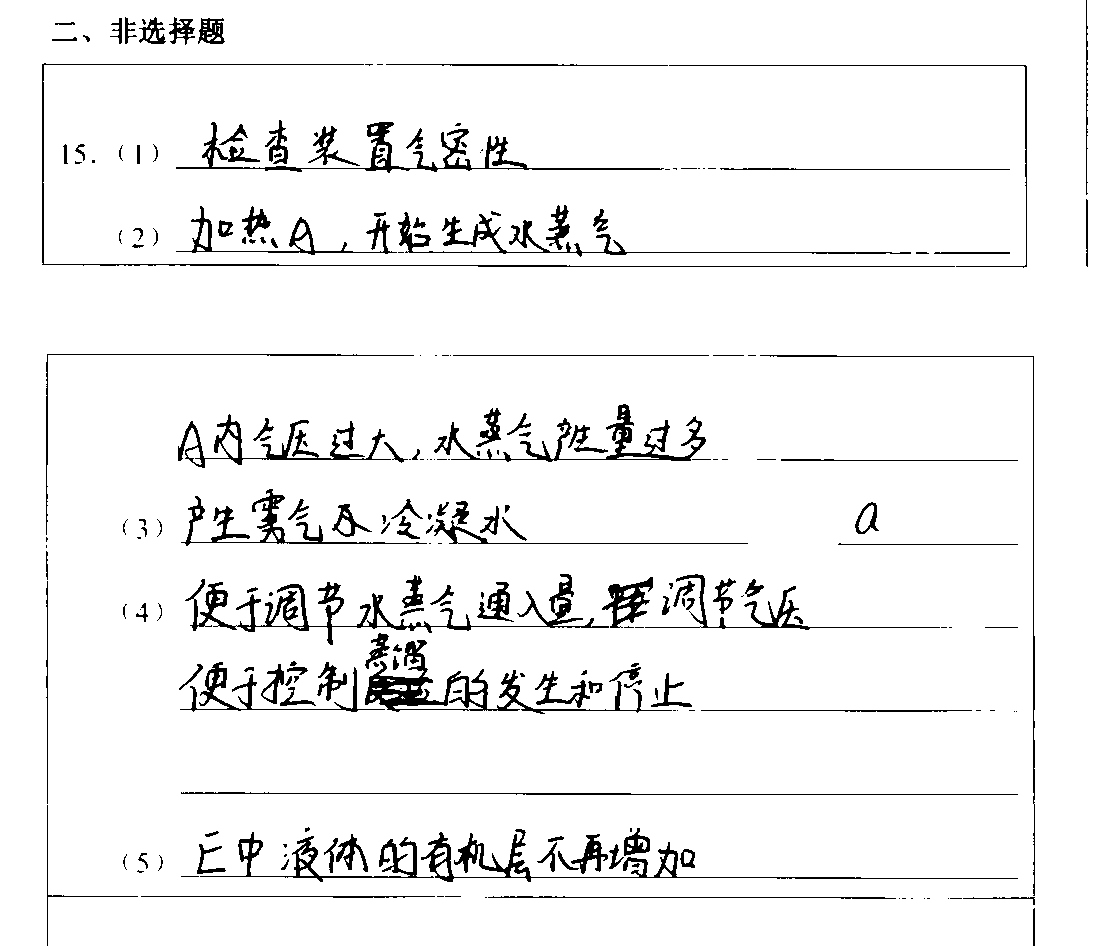 二、非选择题
15.（1）检查装置气密性
（2）加热A，开始生成水蒸气
A内气压过大，水蒸气产生量过多
（3）产生雾气及冷凝水 a
（4）便于调节水蒸气通入量，调节气压
便于控制蒸馏的发生和停止
（5）E中液体的有机层不再增加